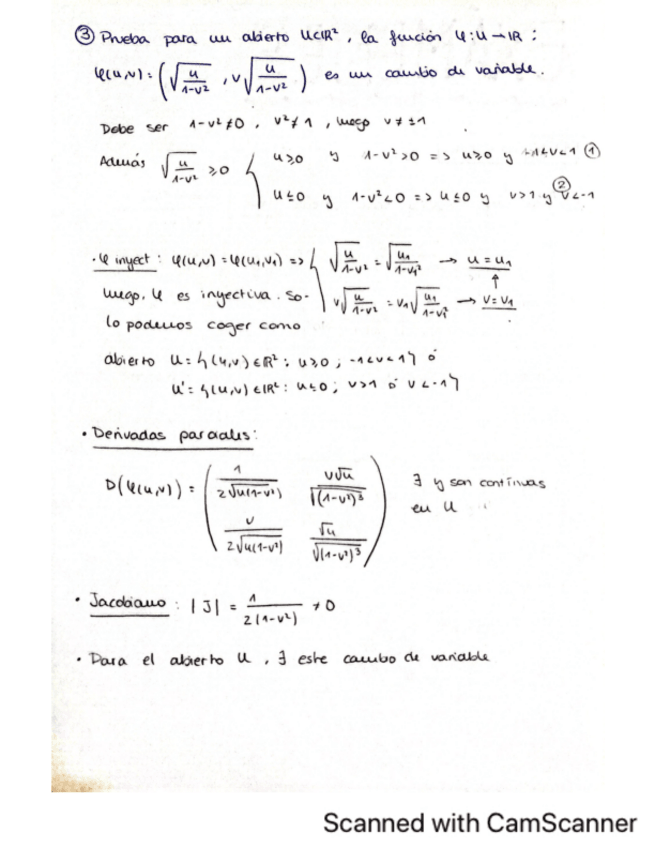 ③ Prueba para un abierto U⊂ℝ², la función φ: U→ℝ :
φ(u,v) = (√(u/(1-v²)) , v√(u/(1-v²))) es un cambio de variable.
Debe ser 1-v²≠0 , v²≠1 , luego v≠±1
Además √(u/(1-v²)) ≥0 { u≥0 y 1-v²>0 => u≥0 y -1<v<1 ①
u≤0 y 1-v²<0 => u≤0 y v>1 y v<-1 ②
· φ inyect : φ(u,v) = φ(u₁,v₁) => { √(u/(1-v²)) = √(u₁/(1-v₁²)) → u = u₁
↑
luego, φ es inyectiva. So- v√(u/(1-v²)) = v₁√(u₁/(1-v₁²)) → v = v₁
lo podemos coger como
abierto U = {(u,v) ∈ ℝ² : u≥0 ; -1<v<1} ó
U' = {(u,v) ∈ ℝ² : u≤0 ; v>1 ó v<-1}
· Derivadas parciales:
D(φ(u,v)) = ( 1/(2√(u(1-v²))) v√u/√((1-v²)³) ) ∃ y son continuas
( v/(2√(u(1-v²))) √u/√((1-v²)³) ) en U
· Jacobiano : |J| = 1/(2(1-v²)) ≠ 0
· Para el abierto U , ∃ este cambio de variable
Scanned with CamScanner